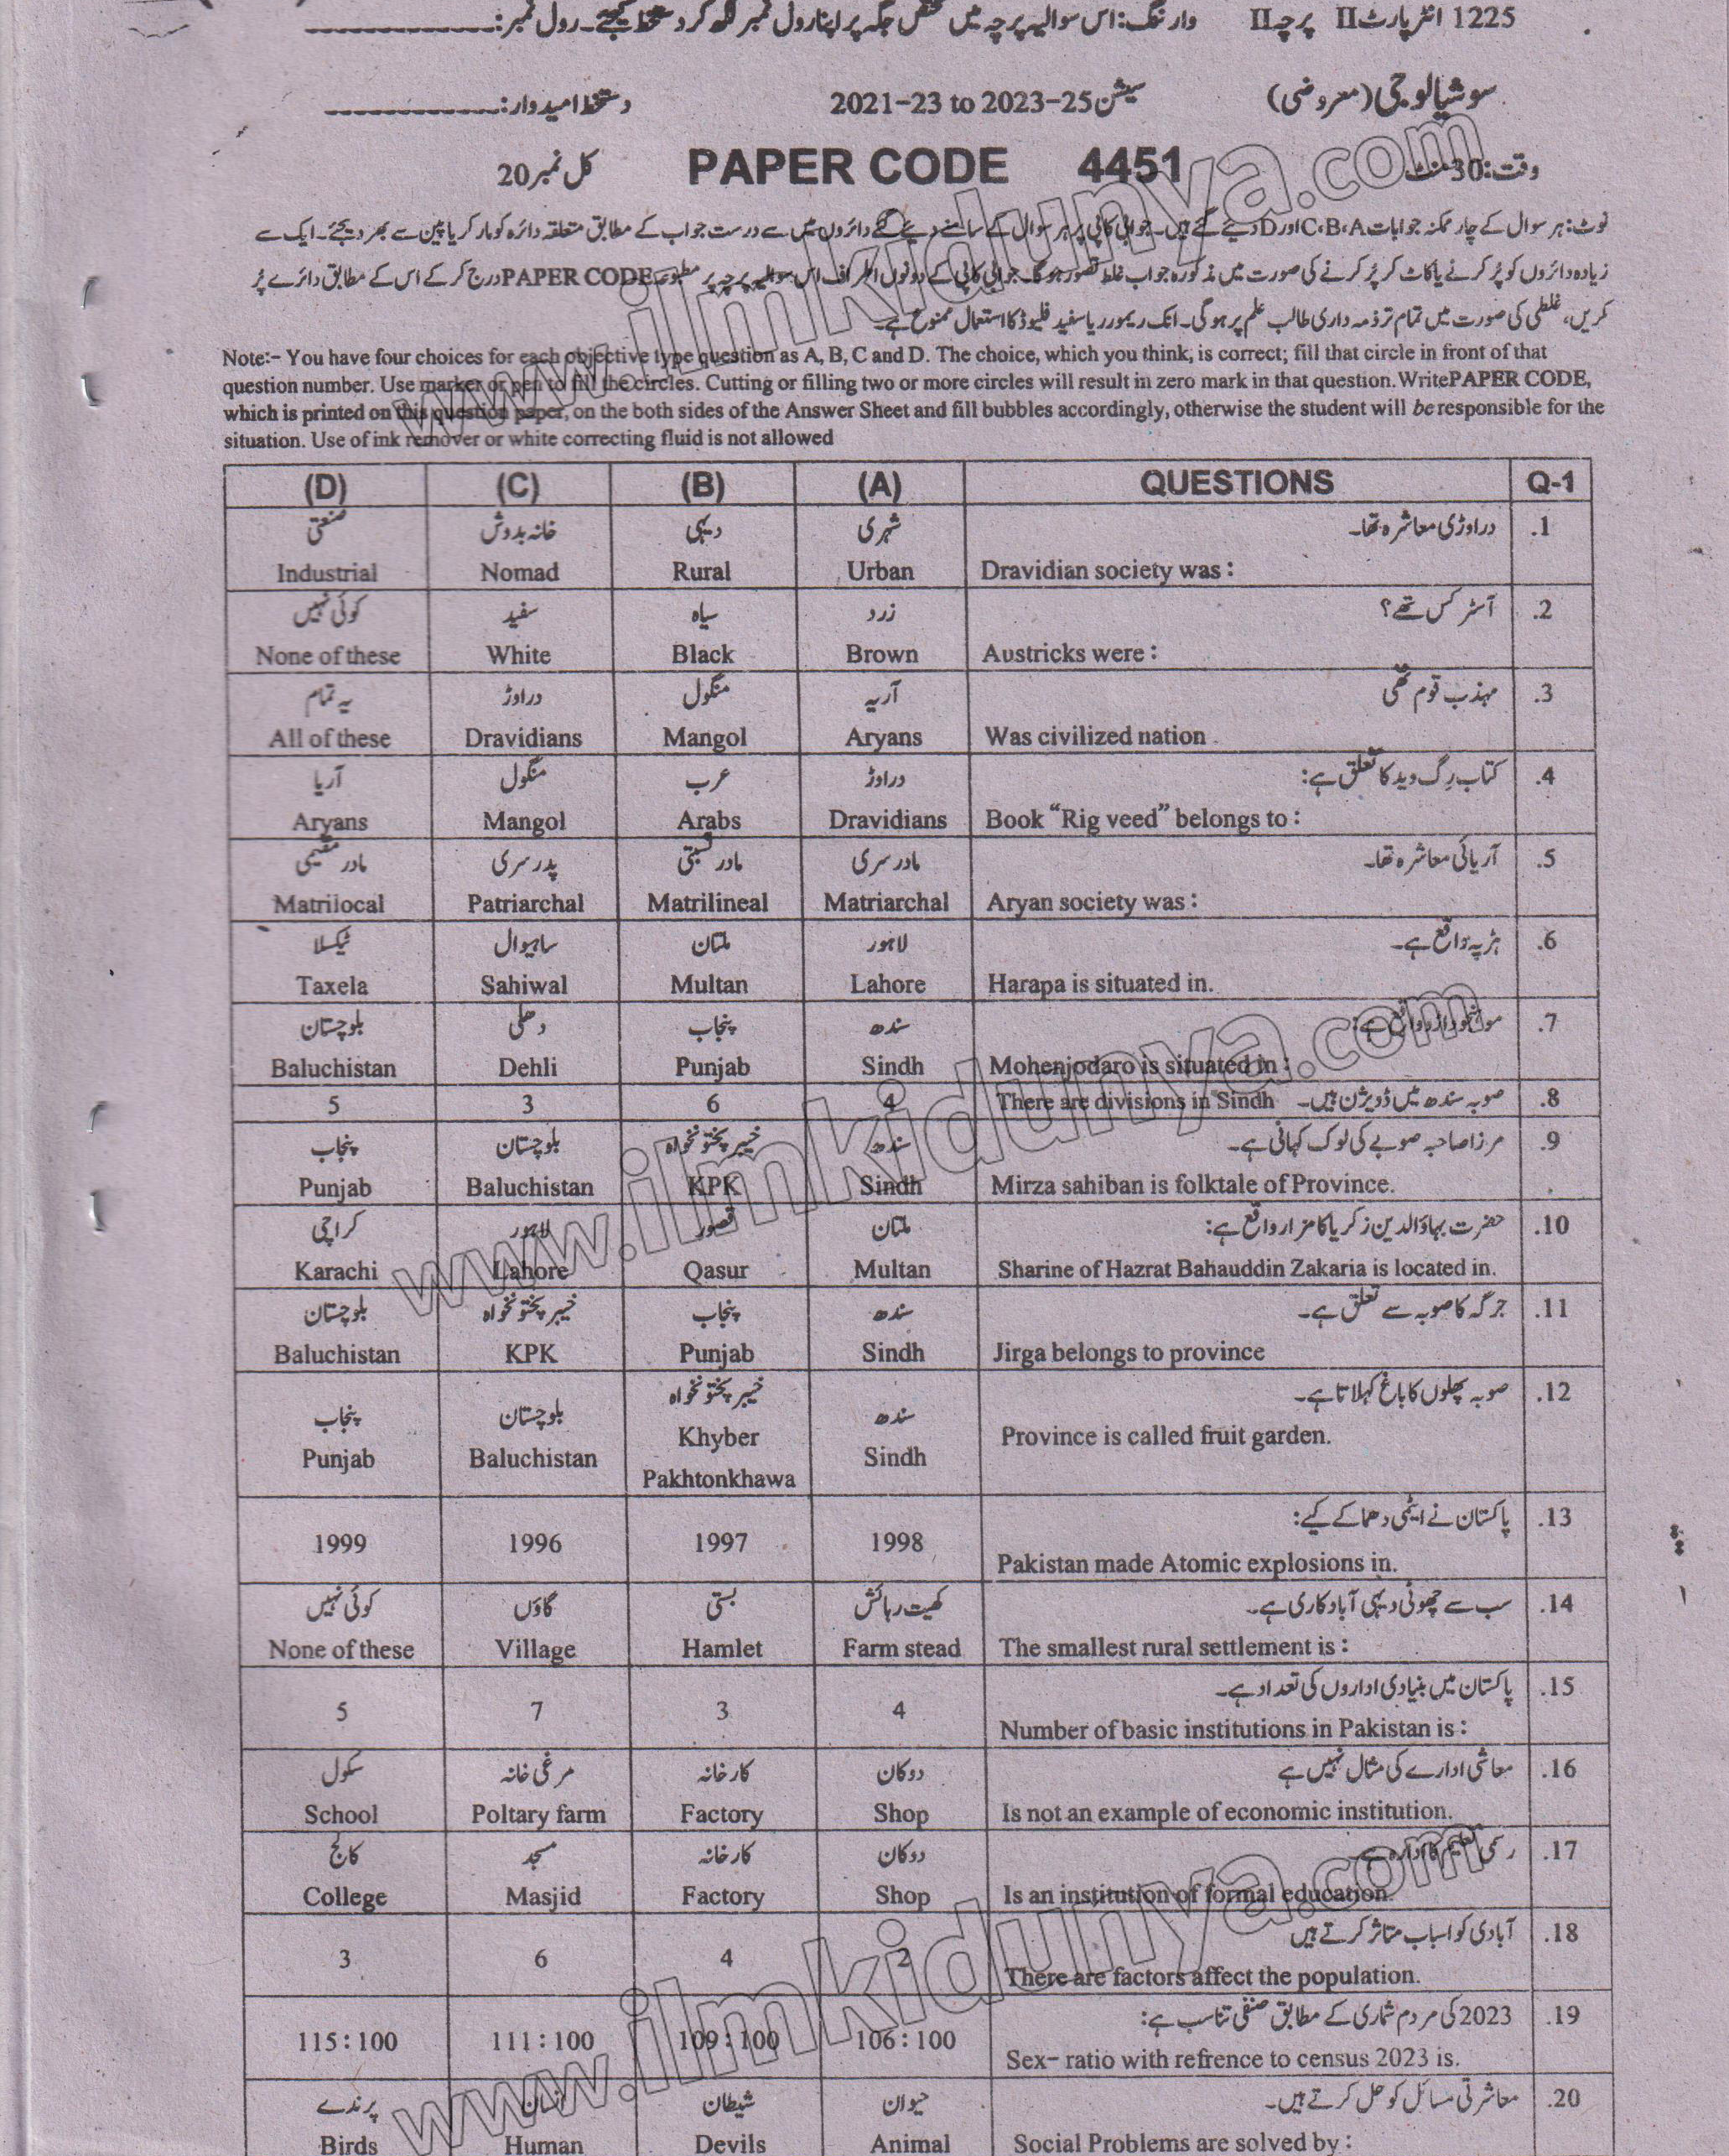 1225 انٹر پارٹ II پرچہ II وارننگ: اس سوالیہ پرچہ میں مختص جگہ پر اپنا رول نمبر لکھ کر دستخط کیجئے۔ رول نمبر:
سوشیالوجی (معروضی) سیشن 2021-23 to 2023-25 دستخط امیدوار:
وقت: 30 منٹ PAPER CODE 4451 کل نمبر 20
نوٹ: ہر سوال کے چار ممکنہ جوابات C،B،A اور D دیئے گئے ہیں۔ جوابی کاپی پر ہر سوال کے سامنے دیئے گئے دائروں میں سے درست جواب کے مطابق متعلقہ دائرہ کو مارکر یا پین سے بھر دیجئے۔ ایک سے
زیادہ دائروں کو پُر کرنے یا کاٹ کر پُر کرنے کی صورت میں مذکورہ جواب غلط تصور ہوگا۔ جوابی کاپی کے دونوں اطراف اس سوالیہ پرچہ پر مطبوعہ PAPER CODE درج کر کے اس کے مطابق دائرے پُر
کریں، غلطی کی صورت میں تمام تر ذمہ داری طالب علم پر ہوگی۔ انک ریمور یا سفید فلیوڈ کا استعمال ممنوع ہے۔
Note:- You have four choices for each objective type question as A, B, C and D. The choice, which you think, is correct; fill that circle in front of that
question number. Use marker or pen to fill the circles. Cutting or filling two or more circles will result in zero mark in that question.WritePAPER CODE,
which is printed on this question paper, on the both sides of the Answer Sheet and fill bubbles accordingly, otherwise the student will be responsible for the
situation. Use of ink remover or white correcting fluid is not allowed
(D) (C) (B) (A) QUESTIONS Q-1
.1 دراوڑی معاشرہ تھا۔ شہری دیہی خانہ بدوش صنعتی
Industrial Nomad Rural Urban Dravidian society was :
.2 آسٹرکس تھے؟ زرد سیاہ سفید کوئی نہیں
None of these White Black Brown Austricks were :
.3 مہذب قوم تھی آریہ منگول دراوڑ یہ تمام
All of these Dravidians Mangol Aryans Was civilized nation
.4 کتاب رِگ وید کا تعلق ہے: دراوڑ عرب منگول آریا
Aryans Mangol Arabs Dravidians Book “Rig veed” belongs to :
.5 آریائی معاشرہ تھا۔ مادر سری مادر نسبتی پدر سری مادر مقیمی
Matrilocal Patriarchal Matrilineal Matriarchal Aryan society was :
.6 ہڑپہ واقع ہے۔ لاہور ملتان ساہیوال ٹیکسلا
Taxela Sahiwal Multan Lahore Harapa is situated in.
.7 واقع ہے: سندھ پنجاب دھلی بلوچستان
Baluchistan Dehli Punjab Sindh Mohenjodaro is situated in :
5 3 6 4 There are divisions in Sindh صوبہ سندھ میں ڈویژن ہیں۔ .8
.9 مرزا صاحبہ صوبے کی لوک کہانی ہے۔ سندھ خیبر پختونخواہ بلوچستان پنجاب
Punjab Baluchistan KPK Sindh Mirza sahiban is folktale of Province.
.10 حضرت بہاؤالدین زکریا کا مزار واقع ہے: ملتان قصور لاہور کراچی
Karachi Lahore Qasur Multan Sharine of Hazrat Bahauddin Zakaria is located in.
.11 جرگہ کا صوبہ سے تعلق ہے۔ سندھ پنجاب خیبر پختونخواہ بلوچستان
Baluchistan KPK Punjab Sindh Jirga belongs to province
.12 صوبہ پھلوں کا باغ کہلاتا ہے۔ سندھ خیبر پختونخواہ بلوچستان پنجاب
Punjab Baluchistan Khyber Pakhtonkhawa Sindh Province is called fruit garden.
.13 پاکستان نے ایٹمی دھماکے کیے:
1999 1996 1997 1998 Pakistan made Atomic explosions in.
.14 سب سے چھوٹی دیہی آباد کاری ہے۔ کھیت رہائش بستی گاؤں کوئی نہیں
None of these Village Hamlet Farm stead The smallest rural settlement is :
.15 پاکستان میں بنیادی اداروں کی تعداد ہے۔
5 7 3 4 Number of basic institutions in Pakistan is :
.16 معاشی ادارے کی مثال نہیں ہے دوکان کارخانہ مرغی خانہ سکول
School Poltary farm Factory Shop Is not an example of economic institution.
.17 رسمی تعلیم کا ادارہ ہے۔ دوکان کارخانہ مسجد کالج
College Masjid Factory Shop Is an institution of formal education.
.18 آبادی کو اسباب متاثر کرتے ہیں
3 6 4 2 There are factors affect the population.
.19 2023 کی مردم شماری کے مطابق صنفی تناسب ہے:
115 : 100 111 : 100 109 : 100 106 : 100 Sex- ratio with refrence to census 2023 is.
.20 معاشرتی مسائل کو حل کرتے ہیں۔ حیوان شیطان انسان پرندے
Birds Human Devils Animal Social Problems are solved by :
www.ilmkidunya.com
www.ilmkidunya.com
www.ilmkidunya.com